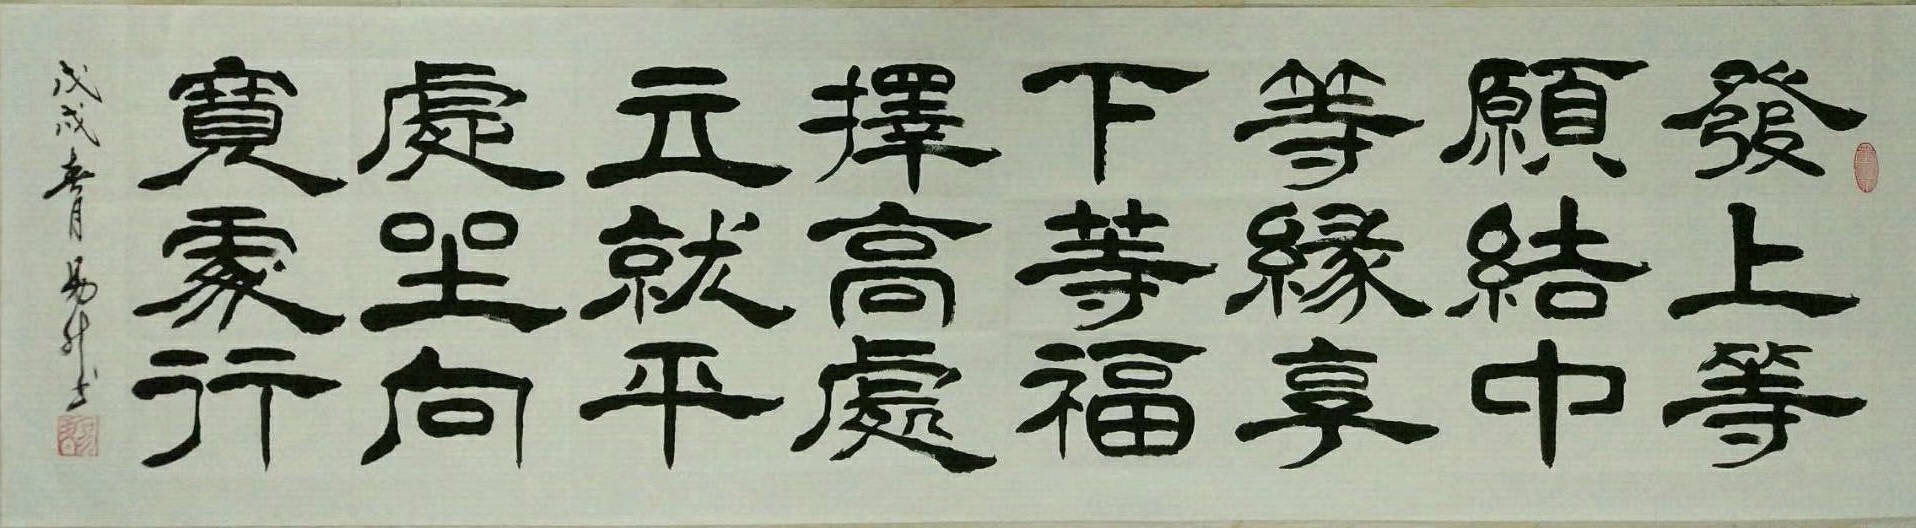 發上等
願結中
等緣享
下等福
擇高處
立就平
處坐向
寬處行
戊戌春月易升书